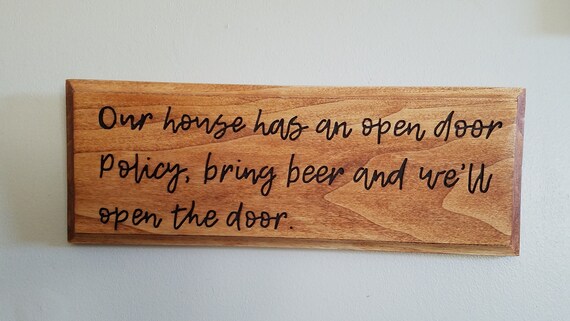 Our house has an open door
Policy, bring beer and we'll
open the door.